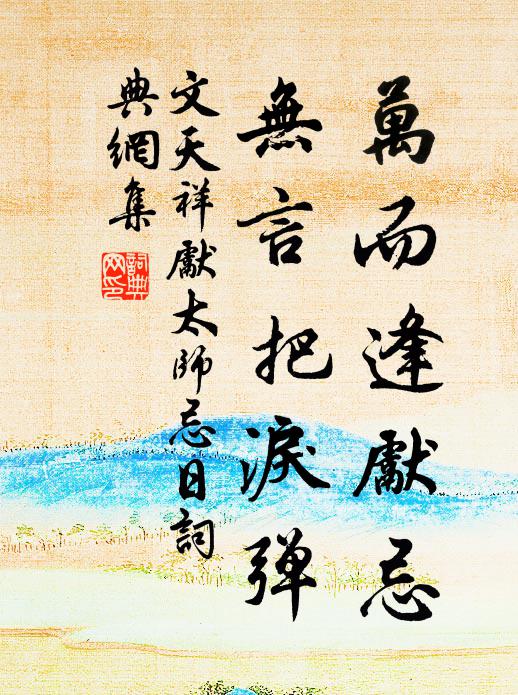 萬而逢獻忌
無言把淚弹
文天祥獻太師忌日詞
典網集
詞典網印